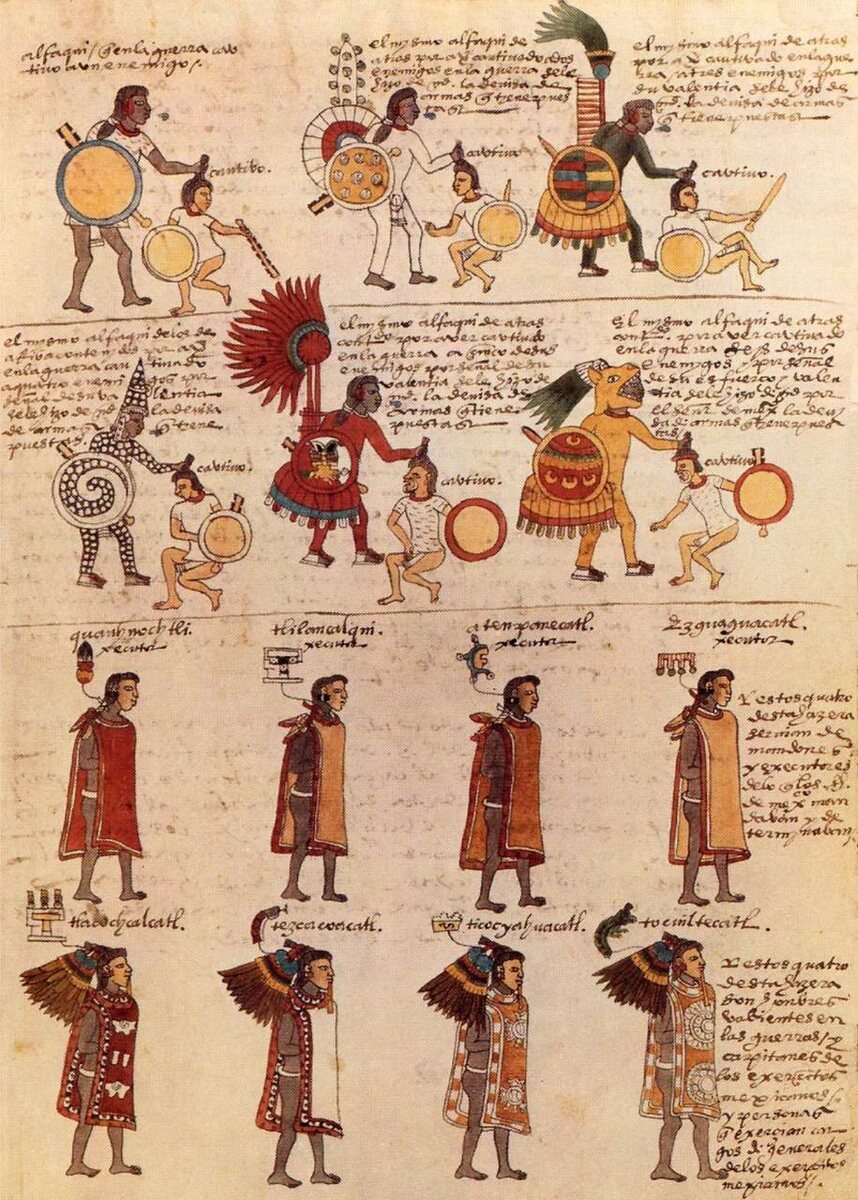 alfaqui / q̃ en la guerra cau
tivo a un enemigo /.
cautivo.
el mysmo alfaqui de
atras por a cautivado dos
enemigos en la guerra sele
hizo de md. la devisa de
armas q̃ tiene pues
tas
cautivo
el mysmo alfaqui de atras
por a cautivado en la gue
rra, a tres enemigos por
su valentia sele hizo de
md. la devisa de armas
q̃ tiene puestas
cautivo.
el mysmo alfaqui de los de
en la guerra cautivado
a quatro enemigos por
señal de su valentia
sele hizo de md la devisa
de armas q̃ tiene
puestas.
cautivo.
el mysmo alfaqui de atras
por aver cautivado
en la guerra a cinco de sus
enemigos por señal de su
valentia sele hizo de
md. la devisa de
armas q̃ tiene
puestas
cautivo.
El mysmo alfaqui de atras
por aver cautivado
en la guerra seys de sus
enemigos / y por señal
de su esfuerço / y valen
tia sele hizo de md por
el señor de mexco la devi
sa de armas q̃ tiene pues
tas /
cautivo
quauhnochtli.
xecutor
tlilancalqui.
xecutor
atenpanecatl.
xecutor
Ezguaguacatl.
xecutor
Y estos quatro
desta hazera
servian de
mandones
y executores
de lo q̃ los s.
de mexco man
davan y de
termynavan /
tlacochcalcatl.
tezcacoacatl.
ticocyahuacatl.
tocuiltecatl.
Y estos quatro
desta hazera
son honbres
valientes en
las guerras / y
capitanes de
los exerçitos
mexicanos /.
y personas
q̃ exerçian car
gos de generales
de los exerçitos
mexicanos /.